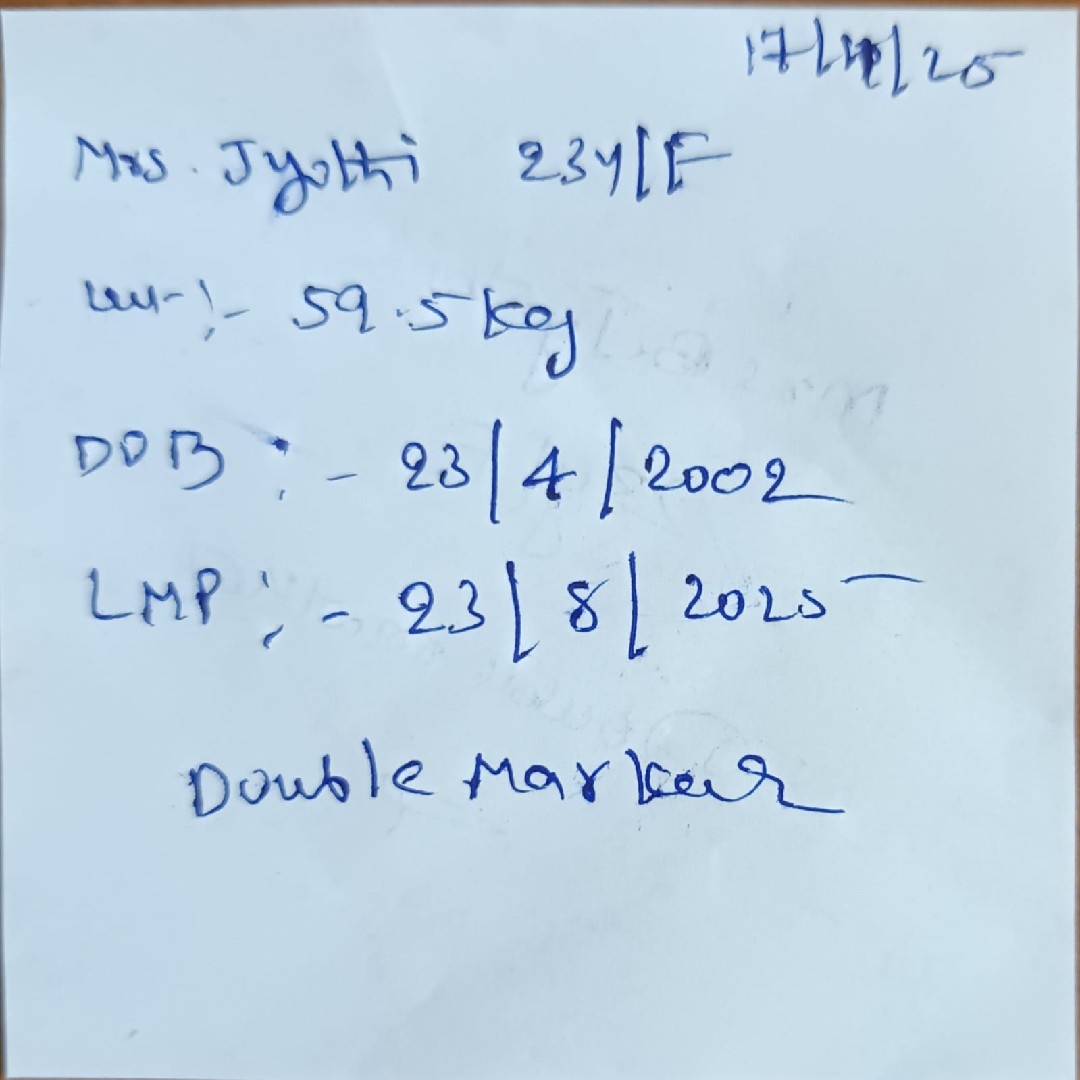 17/11/25
Mrs. Jyothi 23y/F
wt:- 59.5kg
DOB :- 23/4/2002
LMP :- 23/8/2025
Double Marker